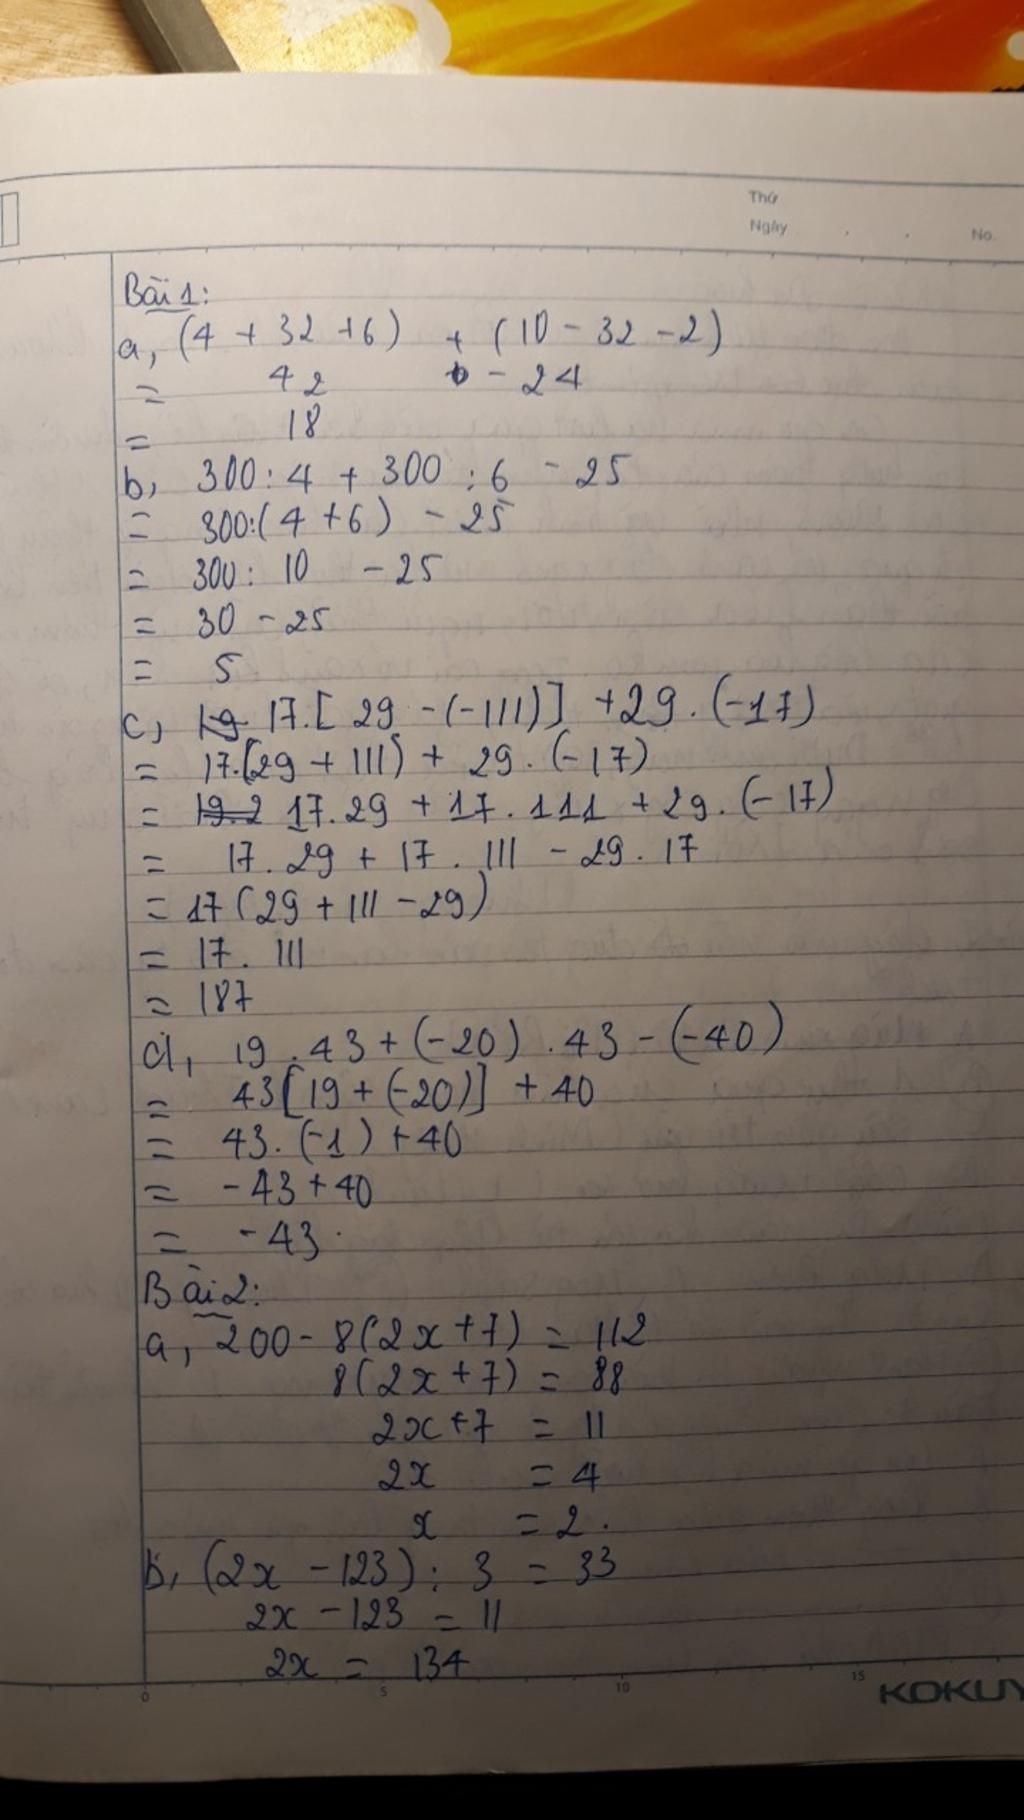 Thứ
Ngày . . No.
Bài 1:
a, (4 + 32 + 6) + (10 - 32 - 2)
= 42 - 24
= 18
b, 300 : 4 + 300 : 6 - 25
= 300:(4 + 6) - 25
= 300: 10 - 25
= 30 - 25
= 5
c, 17.[29 - (-111)] + 29.(-17)
= 17.(29 + 111) + 29.(-17)
= 17.29 + 17.111 + 29.(-17)
= 17.29 + 17.111 - 29.17
= 17(29 + 111 - 29)
= 17.111
= 187
d, 19.43 + (-20).43 - (-40)
= 43[19 + (-20)] + 40
= 43.(-1) + 40
= -43 + 40
= -43.
Bài 2:
a, 200 - 8(2x + 7) = 112
8(2x + 7) = 88
2x + 7 = 11
2x = 4
x = 2.
b, (2x - 123) : 3 = 33
2x - 123 = 11
2x = 134
0 5 10 15
KOKUY